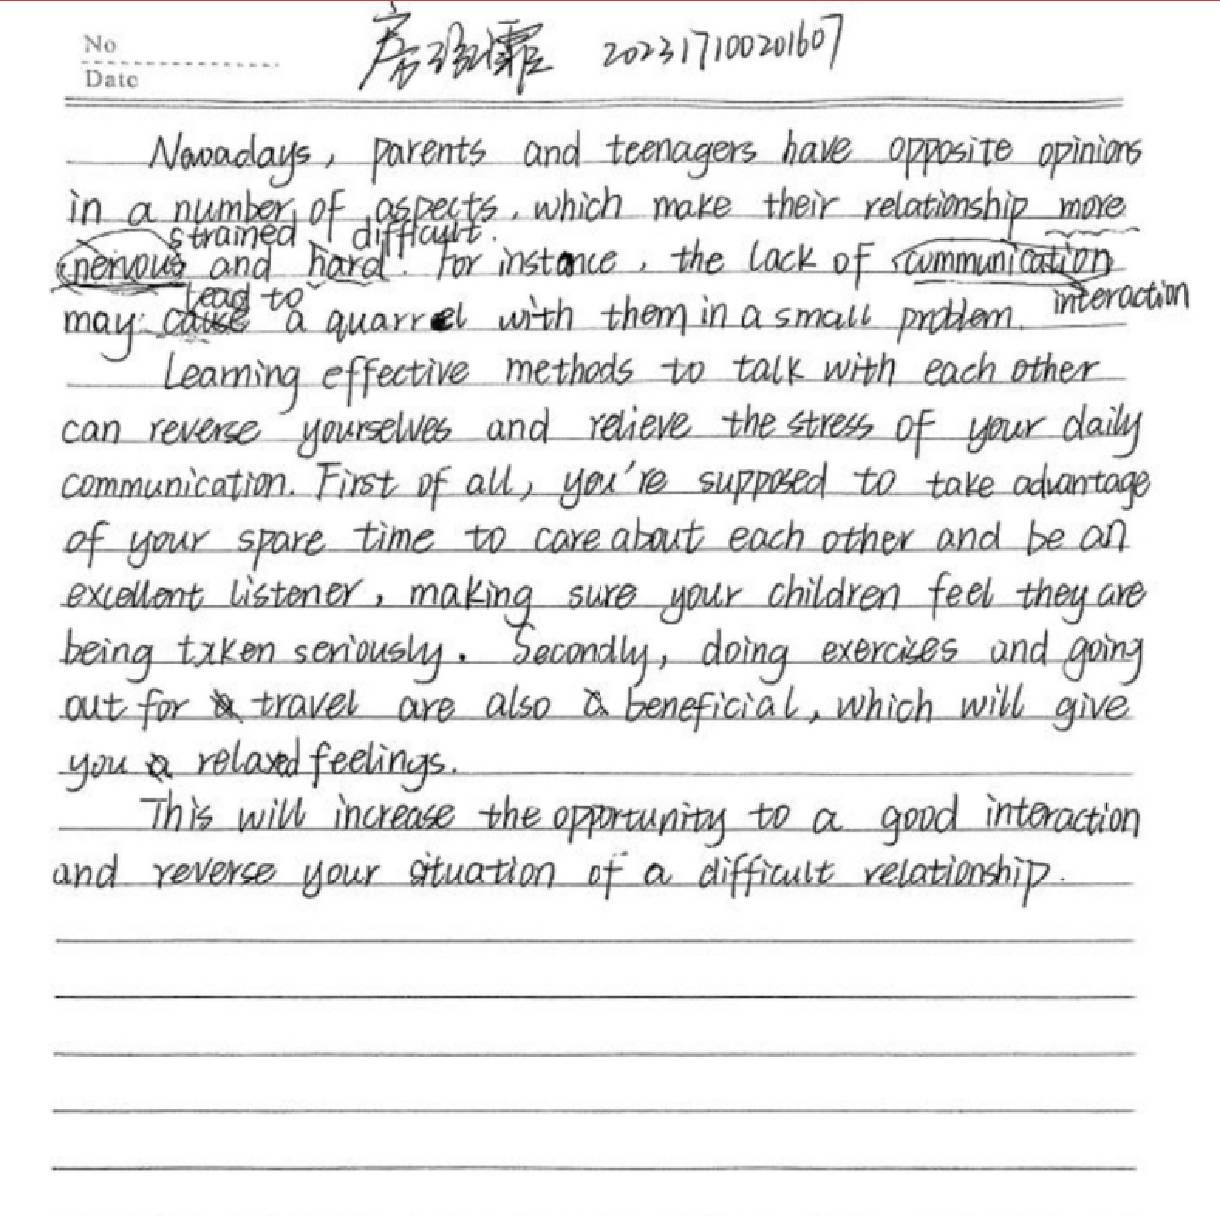 No
Date
房 霏 202317100201607
Nowadays, parents and teenagers have opposite opinions
in a number of aspects, which make their relationship more
strained difficult.
nervous and hard. For instance, the lack of communication
lead to interaction
may cause a quarrel with them in a small problem.
Learning effective methods to talk with each other
can reverse yourselves and relieve the stress of your daily
communication. First of all, you're supposed to take advantage
of your spare time to care about each other and be an
excellent listener, making sure your children feel they are
being taken seriously. Secondly, doing exercises and going
out for travel are also beneficial, which will give
you relaxed feelings.
This will increase the opportunity to a good interaction
and reverse your situation of a difficult relationship.